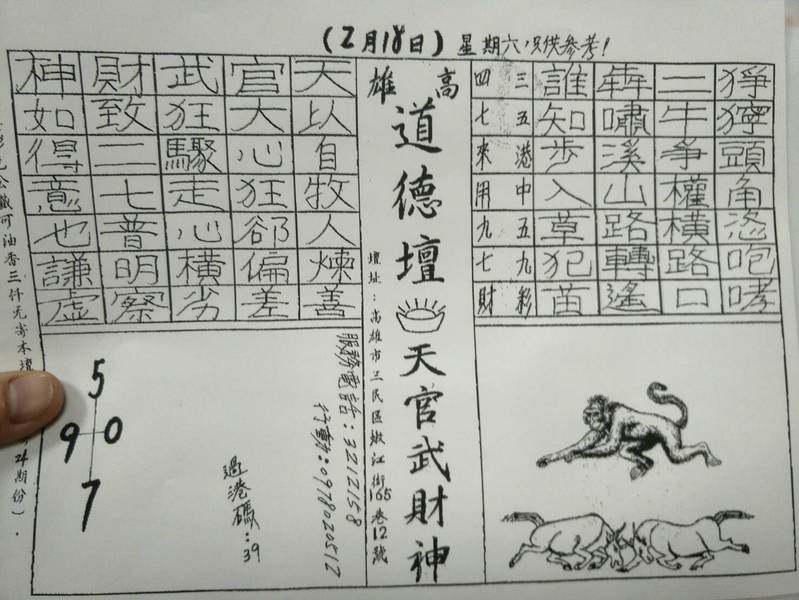 (2月18日) 星期六,只供參考!
猙獰頭角恣咆哮
二牛爭權橫路口
犇嘯溪山路轉遙
誰知步入草犯苗
三五港中五九彩
四七來用九七財
高雄
道德壇
天官武財神
壇址:高雄市三民區嫩江街165巷12號
天以自牧人煉善
官大心狂郤偏差
武狂驟走心橫劣
財致二七普明察
神如得意也謙虛
服務電話:3212158
行動:0978020512
過港碼:39
5
9 0
7
油香三仟元寄本壇
24期份)